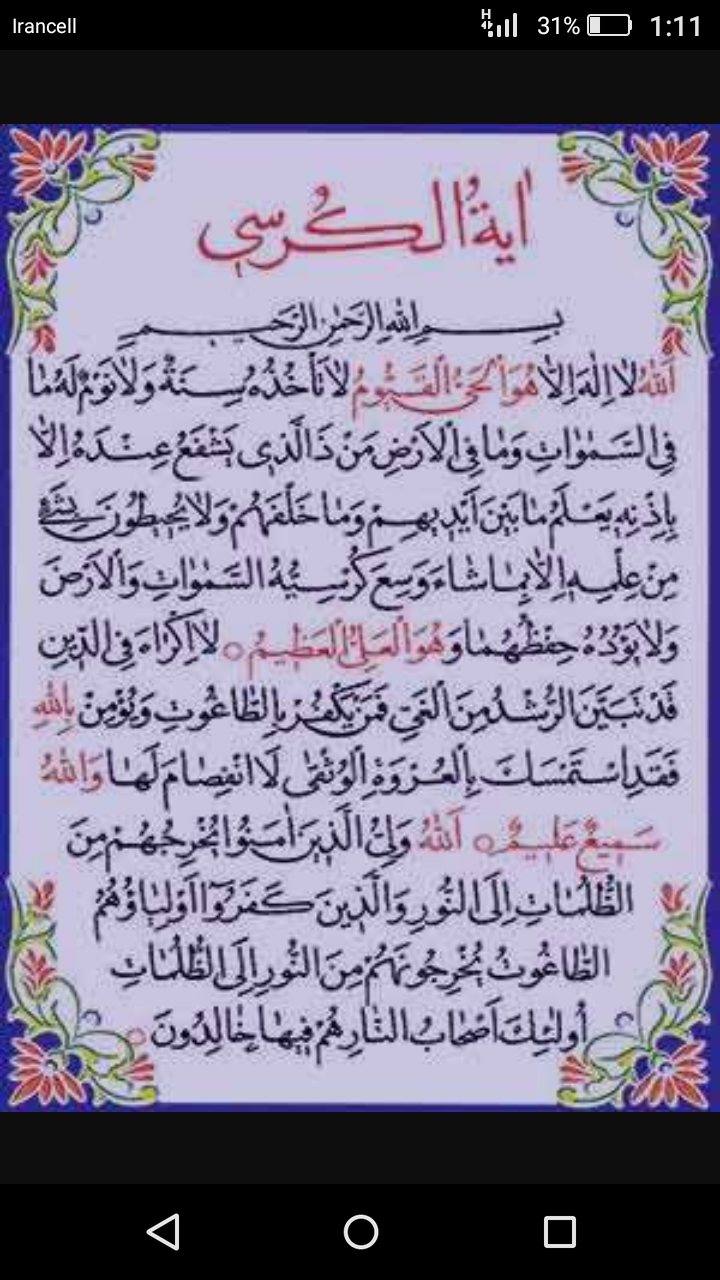 Irancell
H
31%
1:11
اٰيةُ الكُرسي
بِسمِ اللهِ الرَّحمٰنِ الرَّحيمِ
اَللهُ لاٰ اِلٰهَ اِلاّٰ هُوَ الْحَيُّ الْقَيُّومُ لاٰ تَأْخُذُهُ سِنَةٌ وَلاٰ نَوْمٌ لَهُ مٰا
فِي السَّمٰوٰاتِ وَمٰا فِي الْاَرْضِ مَنْ ذَا الَّذي يَشْفَعُ عِنْدَهُ اِلاّٰ
بِاِذْنِهِ يَعْلَمُ مٰا بَيْنَ اَيْديهِمْ وَمٰا خَلْفَهُمْ وَلاٰ يُحيطُونَ بِشَيْءٍ
مِنْ عِلْمِهِ اِلاّٰ بِمٰا شٰاءَ وَسِعَ كُرْسِيُّهُ السَّمٰوٰاتِ وَالْاَرْضَ
وَلاٰ يَؤُدُهُ حِفْظُهُمٰا وَهُوَ الْعَلِيُّ الْعَظيمُ ○ لاٰ اِكْرٰاهَ فِي الدّينِ
قَدْ تَبَيَّنَ الرُّشْدُ مِنَ الْغَيِّ فَمَنْ يَكْفُرْ بِالطّٰاغُوتِ وَيُؤْمِنْ بِاللهِ
فَقَدِ اسْتَمْسَكَ بِالْعُرْوَةِ الْوُثْقىٰ لَا انْفِصٰامَ لَهٰا وَاللهُ
سَميعٌ عَليمٌ ○ اَللهُ وَلِيُّ الَّذينَ اٰمَنُوا يُخْرِجُهُمْ مِنَ
الظُّلُمٰاتِ اِلَى النُّورِ وَالَّذينَ كَفَرُوا اَوْلِيٰاؤُهُمُ
الطّٰاغُوتُ يُخْرِجُونَهُمْ مِنَ النُّورِ اِلَى الظُّلُمٰاتِ
اُولٰئِكَ اَصْحٰابُ النّٰارِ هُمْ فيهٰا خٰالِدُونَ ○